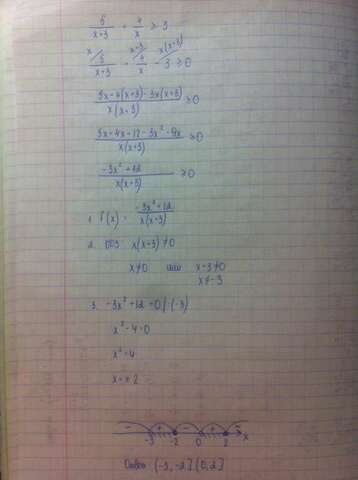 5/(x+3) + 4/x ≥ 3
x x+3 x(x+3)
5/(x+3) + 4/x - 3 ≥ 0
(5x+4(x+3)-3x(x+3))/(x(x+3)) ≥ 0
(5x+4x+12-3x²-9x)/(x(x+3)) ≥ 0
(-3x²+12)/(x(x+3)) ≥ 0
1. f(x) = (-3x²+12)/(x(x+3))
2. ОДЗ: x(x+3) ≠ 0
x≠0 или x+3≠0
x≠-3
3. -3x²+12=0 |:(-3)
x²-4=0
x²=4
x=±2
- + - + -
-3 -2 0 2 x
Ответ (-3;-2] (0;2]